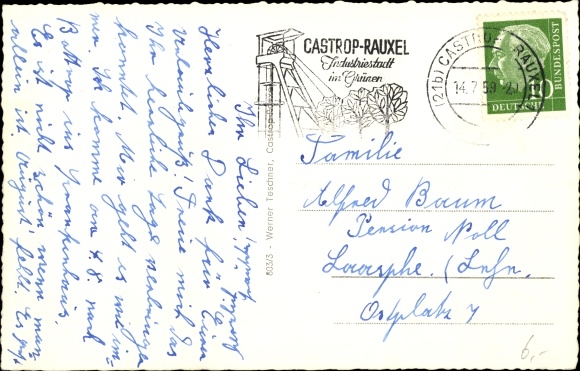 CASTROP-RAUXEL
Industriestadt
im Grünen
(21b) CASTROP-RAUXEL
14.7.59
DEUTSCHE
BUNDESPOST
10
Familie
Alfred Baum
Pension Noll
Laasphe. (Lahn.
Ostplatz 7
6,-
803/3 - Werner Teschner, Castrop
Ihr Lieben!
Herzlichen Dank für Euren
Urlaubsgruß! Freue mich das
Ihr herrliche Tage verbringen
könntet. Mir geht es wie im-
mer. Ich komme am 4.8. nach
Bottrop ins Krankenhaus.
Es ist nicht schön wenn man
allein ist